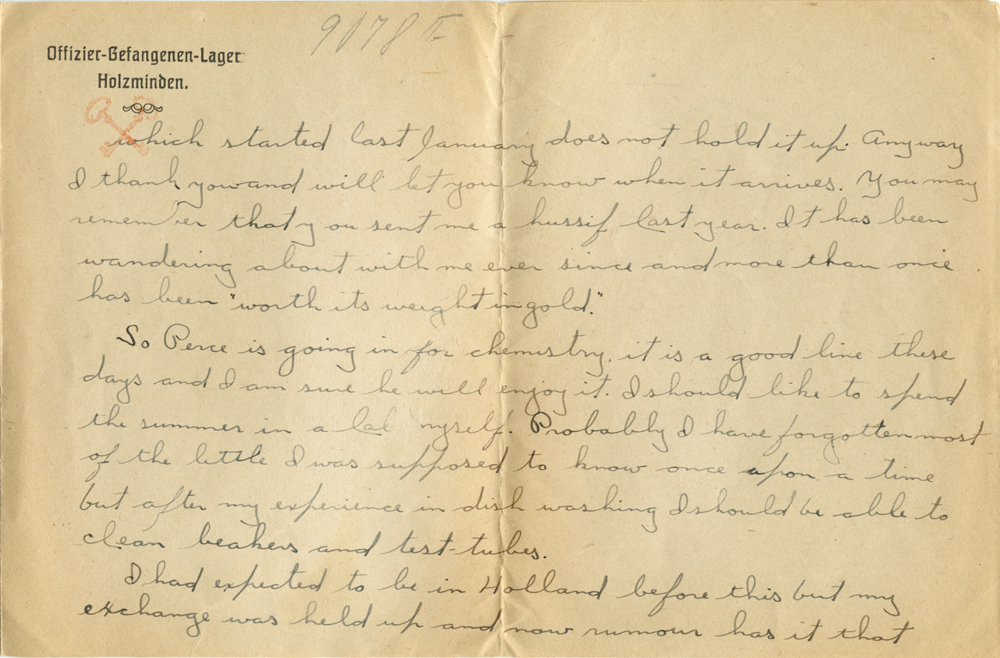 9178 E
Offizier-Gefangenen-Lager
Holzminden.
which started last January does not hold it up. Anyway
I thank you and will let you know when it arrives. You may
remember that you sent me a hussif last year. It has been
wandering about with me ever since and more than once
has been "worth its weight in gold."
So Perce is going in for chemistry, it is a good line these
days and I am sure he will enjoy it. I should like to spend
the summer in a lab myself. Probably I have forgotten most
of the little I was supposed to know once upon a time
but after my experience in dish washing I should be able to
clean beakers and test-tubes.
I had expected to be in Holland before this but my
exchange was held up and now rumour has it that